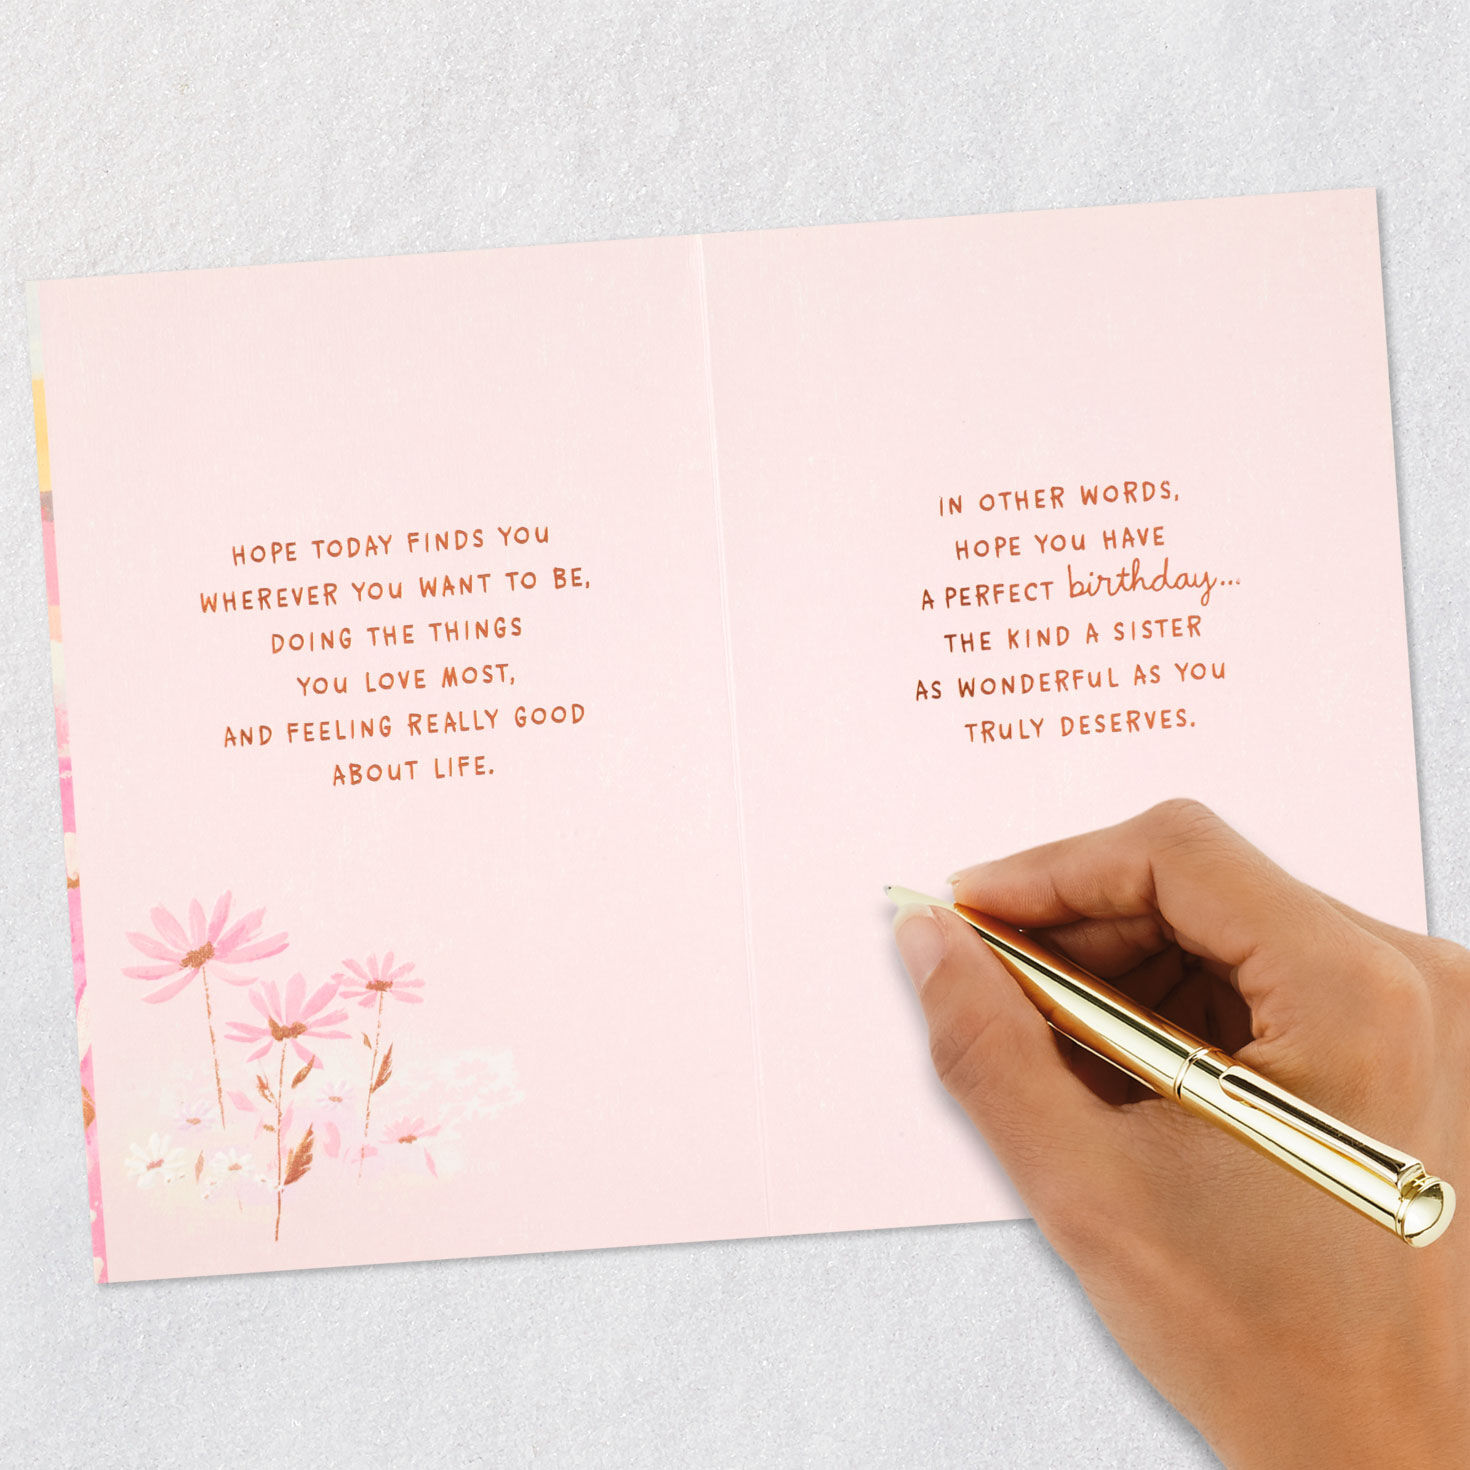 HOPE TODAY FINDS YOU
WHEREVER YOU WANT TO BE,
DOING THE THINGS
YOU LOVE MOST,
AND FEELING REALLY GOOD
ABOUT LIFE.
IN OTHER WORDS,
HOPE YOU HAVE
A PERFECT birthday...
THE KIND A SISTER
AS WONDERFUL AS YOU
TRULY DESERVES.